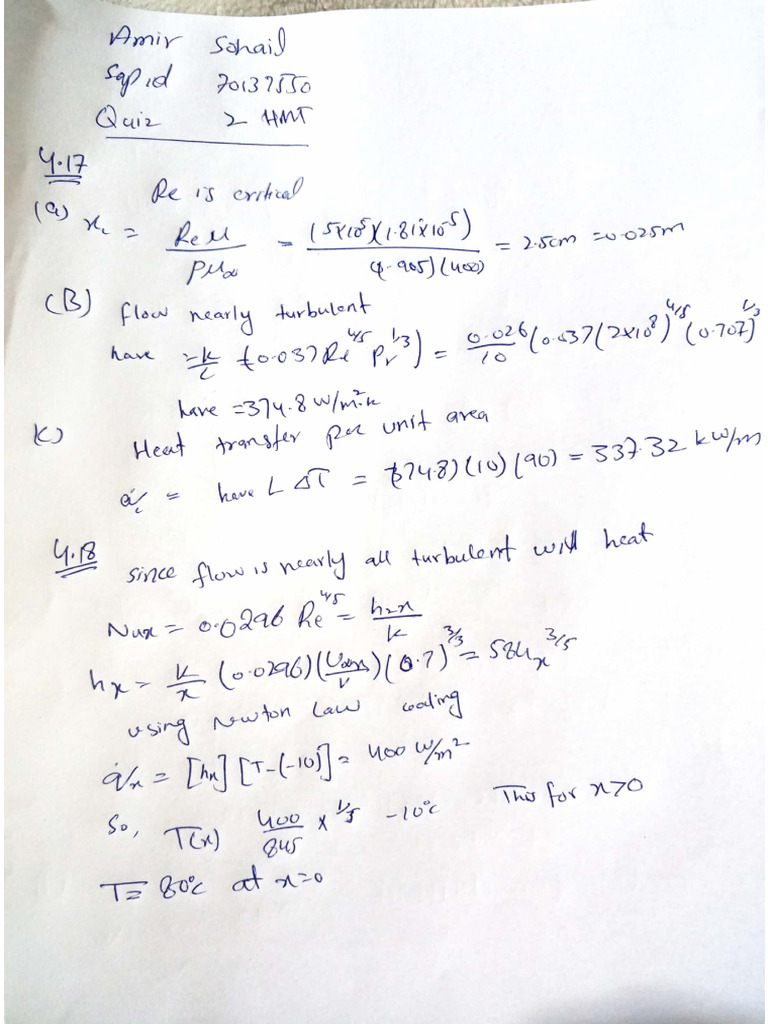 Amir Sohail
Sap id 70137550
Quiz 2 HMT
4.17
Re is critical
(a) x_c = Re μ / ρ μ∞ = (5×10^5)(1.81×10^-5) / (1.905)(400) = 2.5cm = 0.025m
(B) flow nearly turbulent
have = k/L (0.037 Re^4/5 Pr^1/3) = 0.026/10 (0.037(2×10^8)^4/5 (0.707)^1/3
have = 374.8 W/m².k
(c) Heat transfer per unit area
q̇ = have L ΔT = (374.8)(10)(90) = 337.32 kw/m
4.18
since flow is nearly all turbulent with heat
Nux = 0.0296 Re^4/5 = hxx / k
hx = k/x (0.0296)( )(0.7)^3/3 = 584x^3/5
using Newton Law cooling
q̇x = [hx] [T-(-10)] = 400 W/m²
So, T(x) 400/845 x^1/5 -10°C This for x>0
T = 80°C at x=0